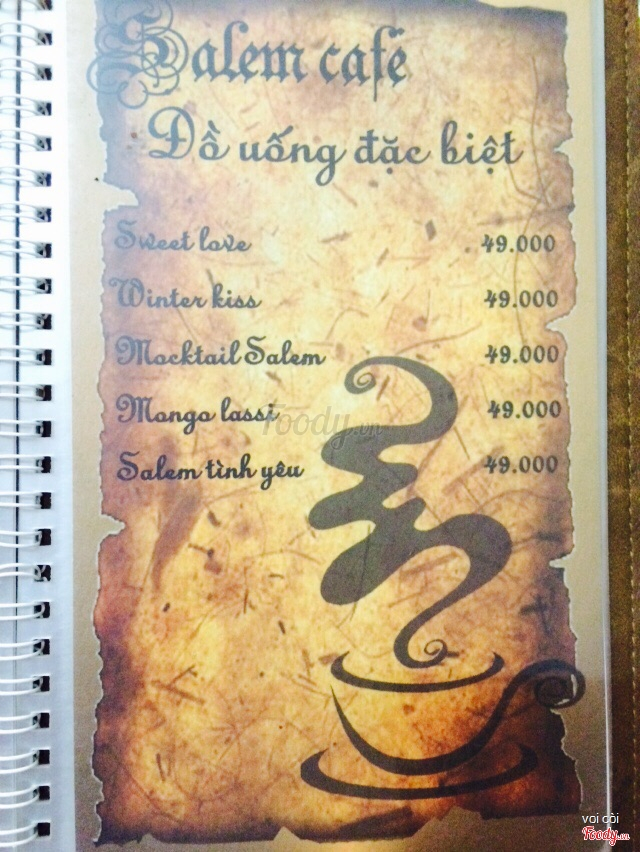 Salem cafë
Đồ uống đặc biệt
Sweet love 49.000
Winter kiss 49.000
Mocktail Salem 49.000
Mongo lassi 49.000
Foody.vn
Salem tình yêu 49.000
voi còi
Foody.vn